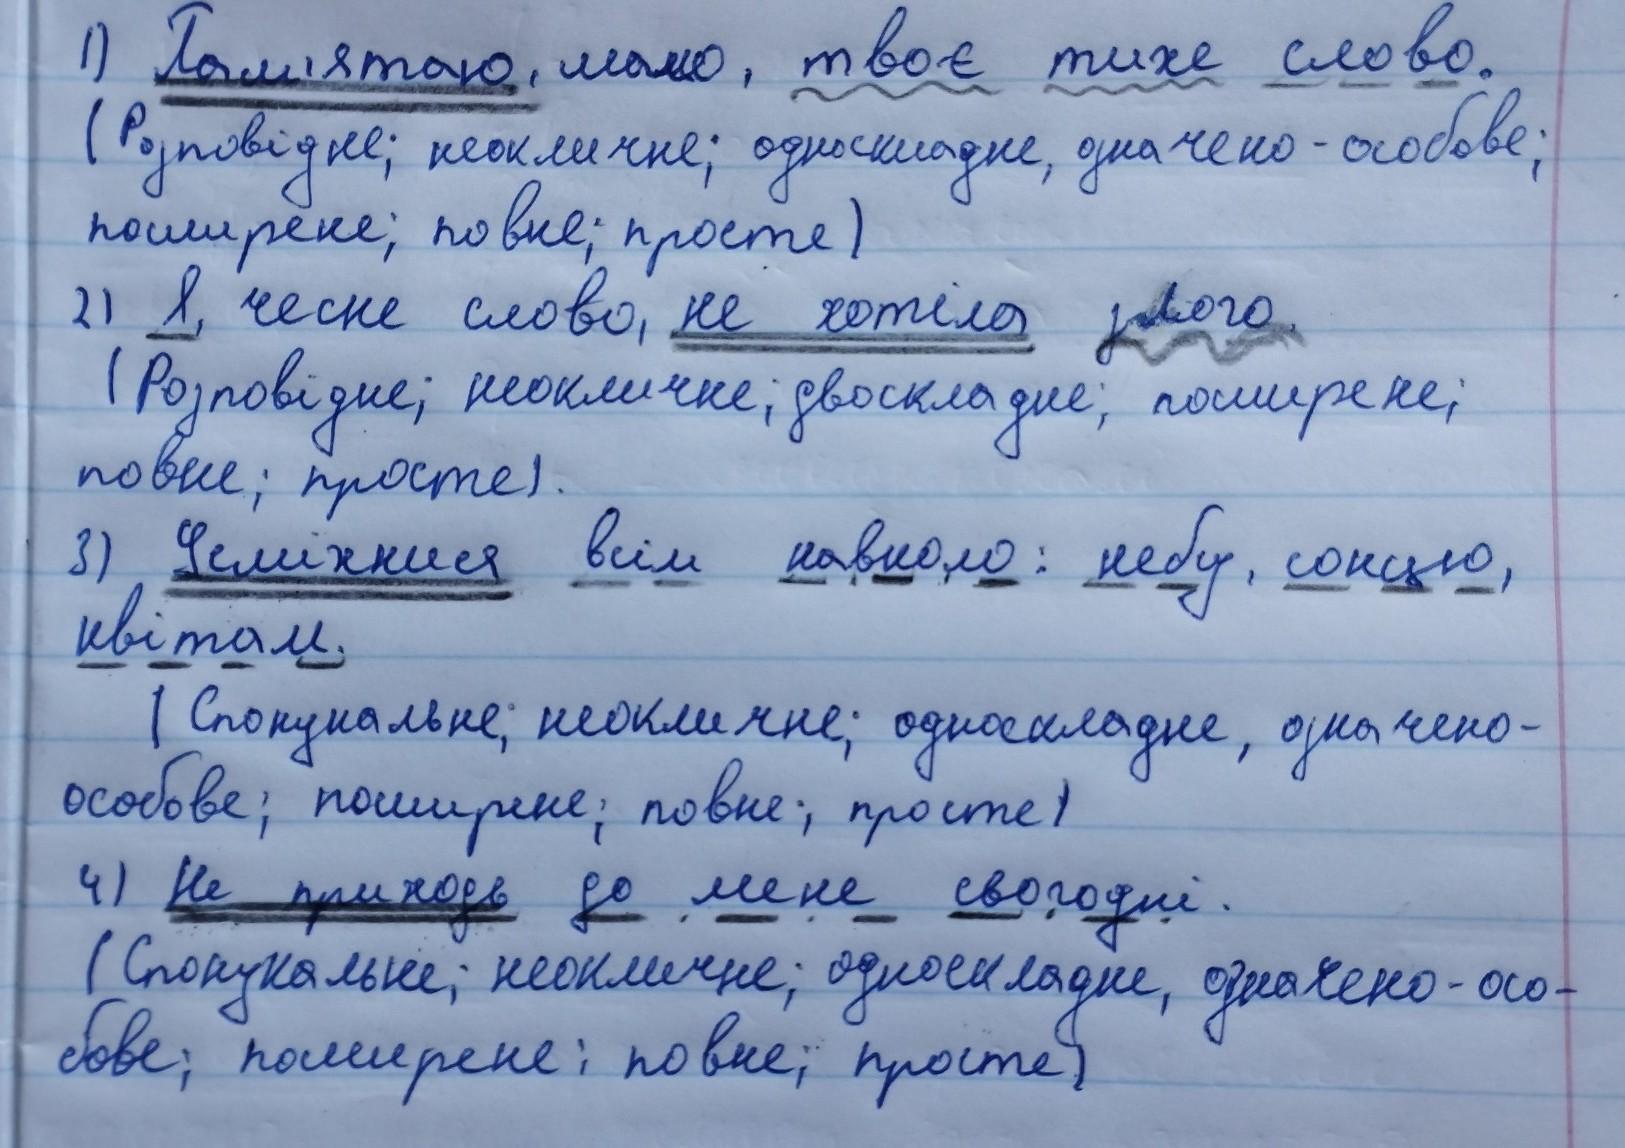 1) Пам'ятаю, мамо, твоє тихе слово.
(Розповідне; неокличне; односкладне, означено-особове;
поширене; повне; просте)
2) Я, чесне слово, не хотіла злого.
(Розповідне; неокличне; двоскладне; поширене;
повне; просте).
3) Усміхнися всім навколо: небу, сонцю,
квітам.
(Спонукальне; неокличне; односкладне, означено-
особове; поширене; повне; просте)
4) Не приходь до мене сьогодні.
(Спонукальне; неокличне; односкладне, означено-осо-
бове; поширене; повне; просте)